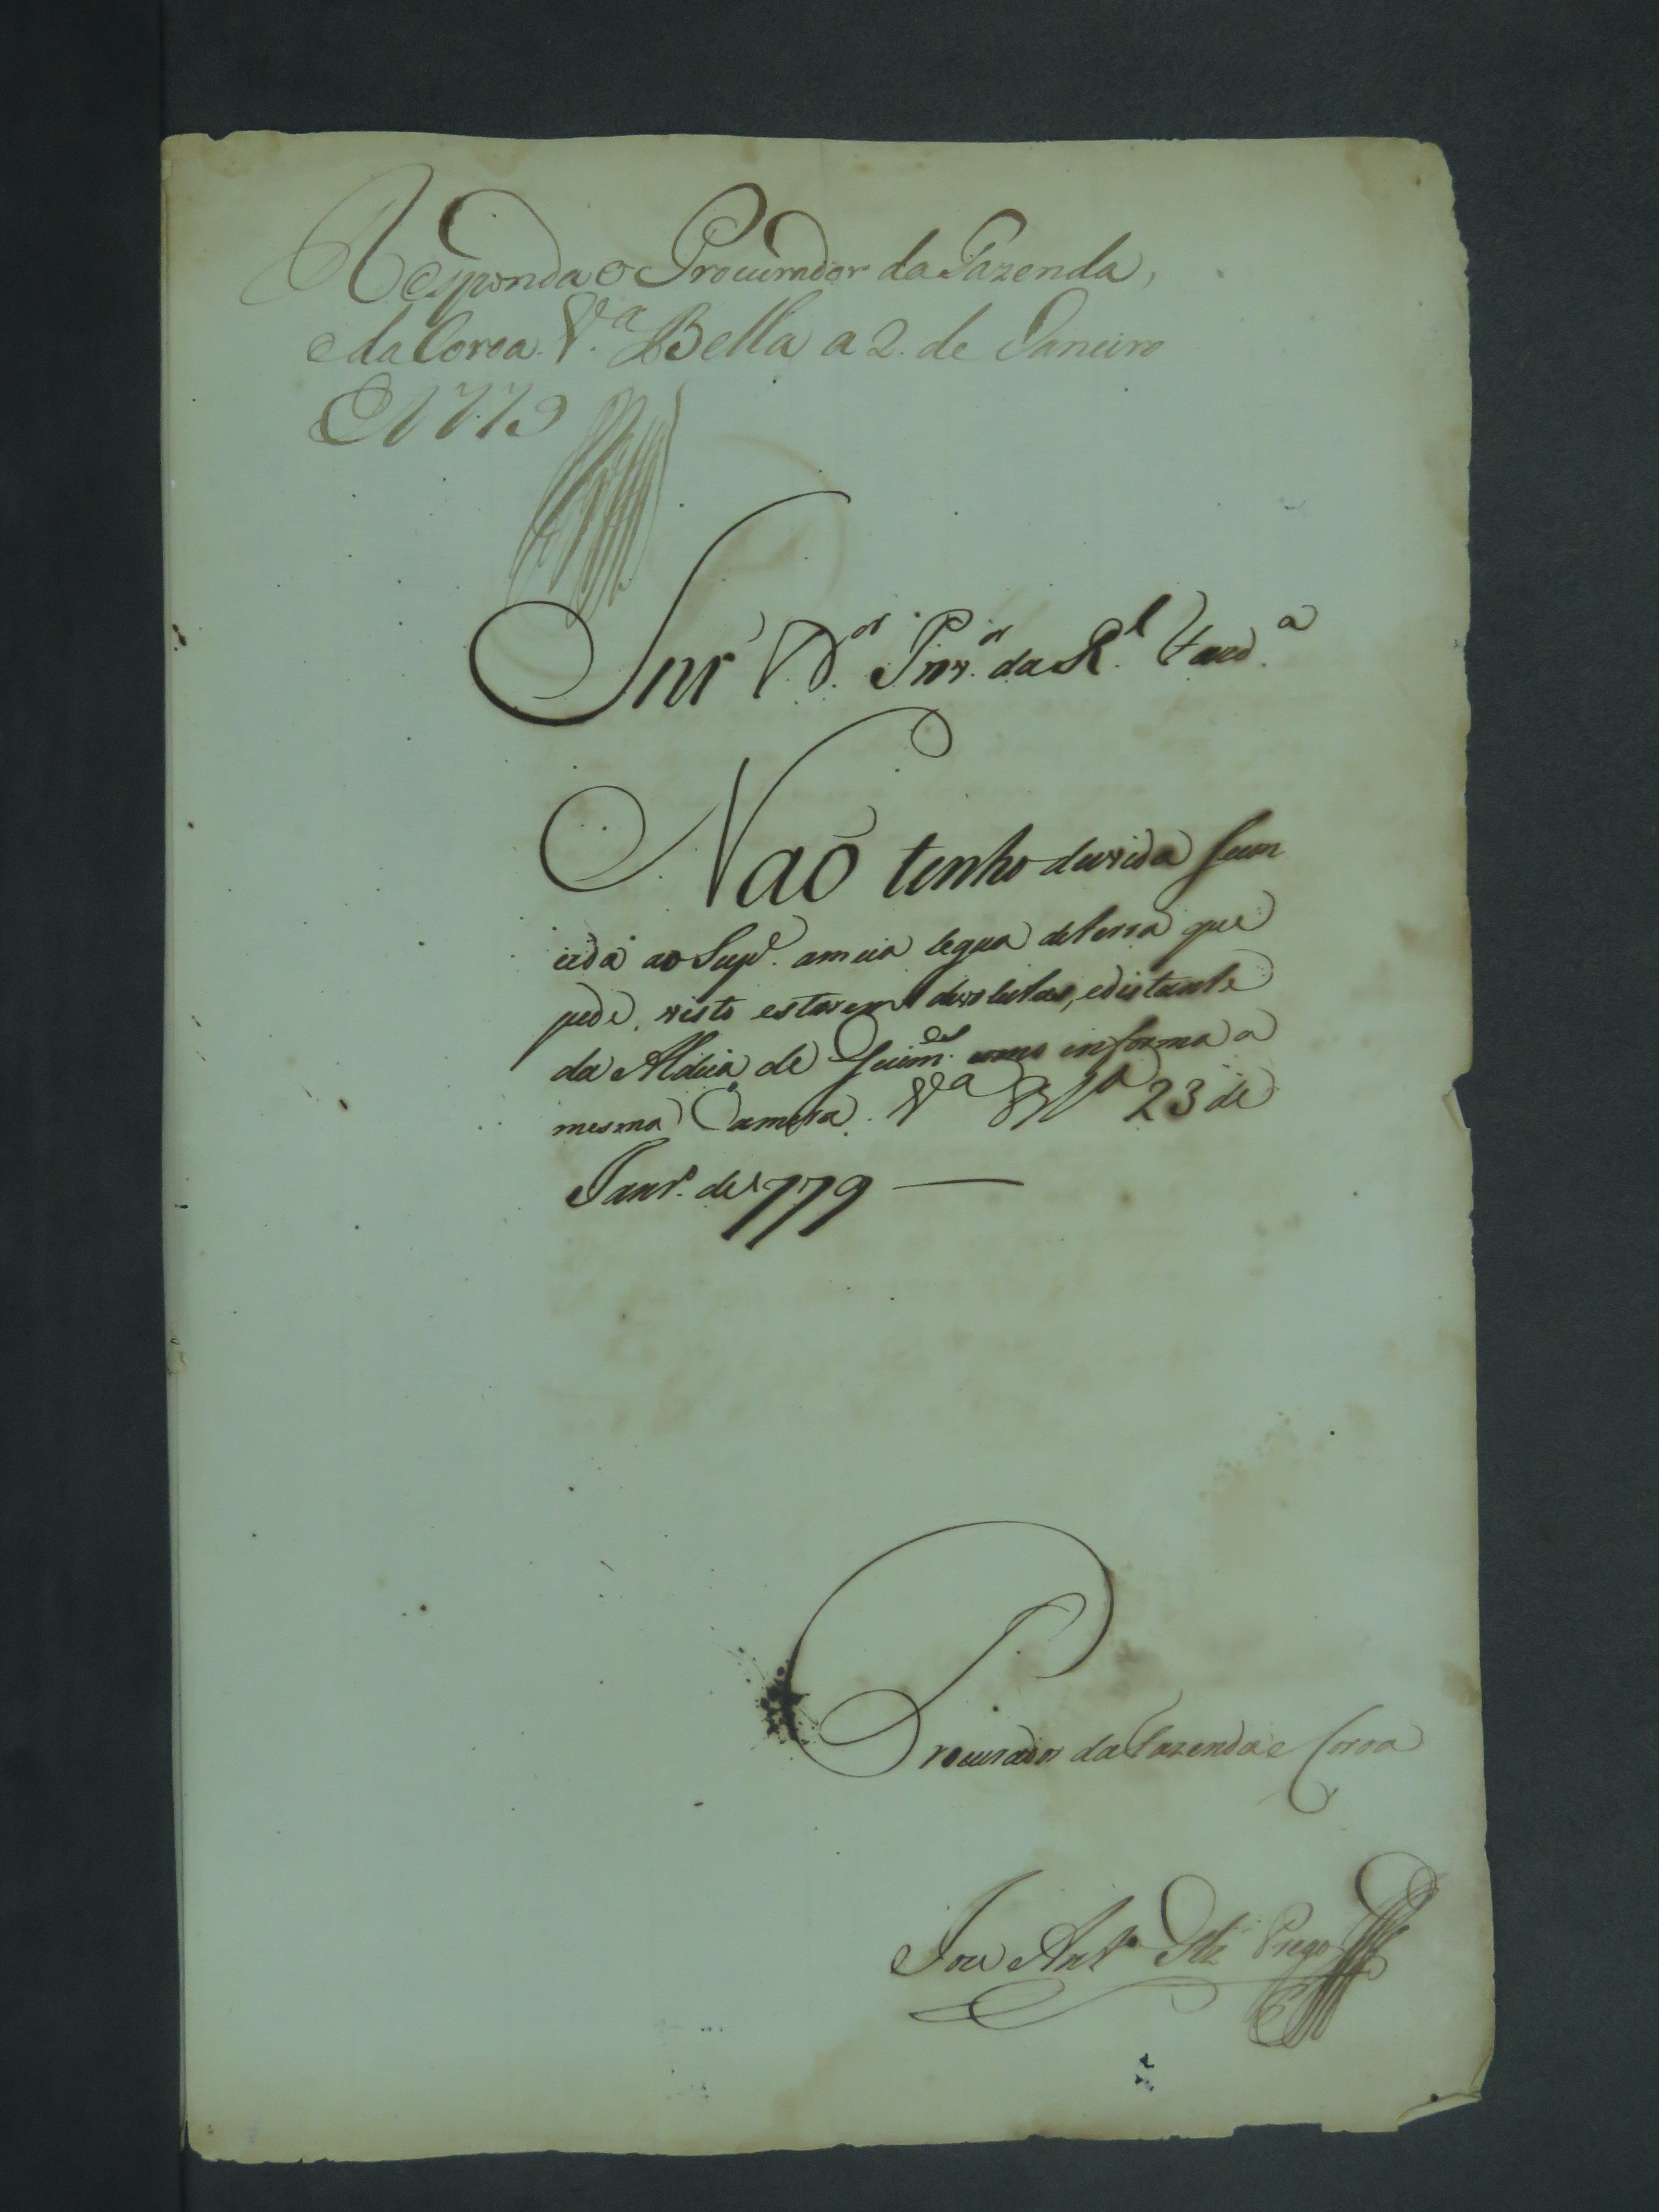 Responda o Procurador da Fazenda,
e da Coroa. V.ª Bella a 2. de Janeiro
de 1779
Snr' D.or Pror. da R.l Fazd.ª
Naõ tenho duvida se con
ceda ao Supe. a meia legua de terra que
pede, visto estarem devolutas, e distante
da Aldeia de Guim.es como informa a
mesma Camera. V.ª B.ª 23 de
Janr.º de 1779 —
Procurador da Fazenda e Coroa
Joze Ant.º Glz' Prego